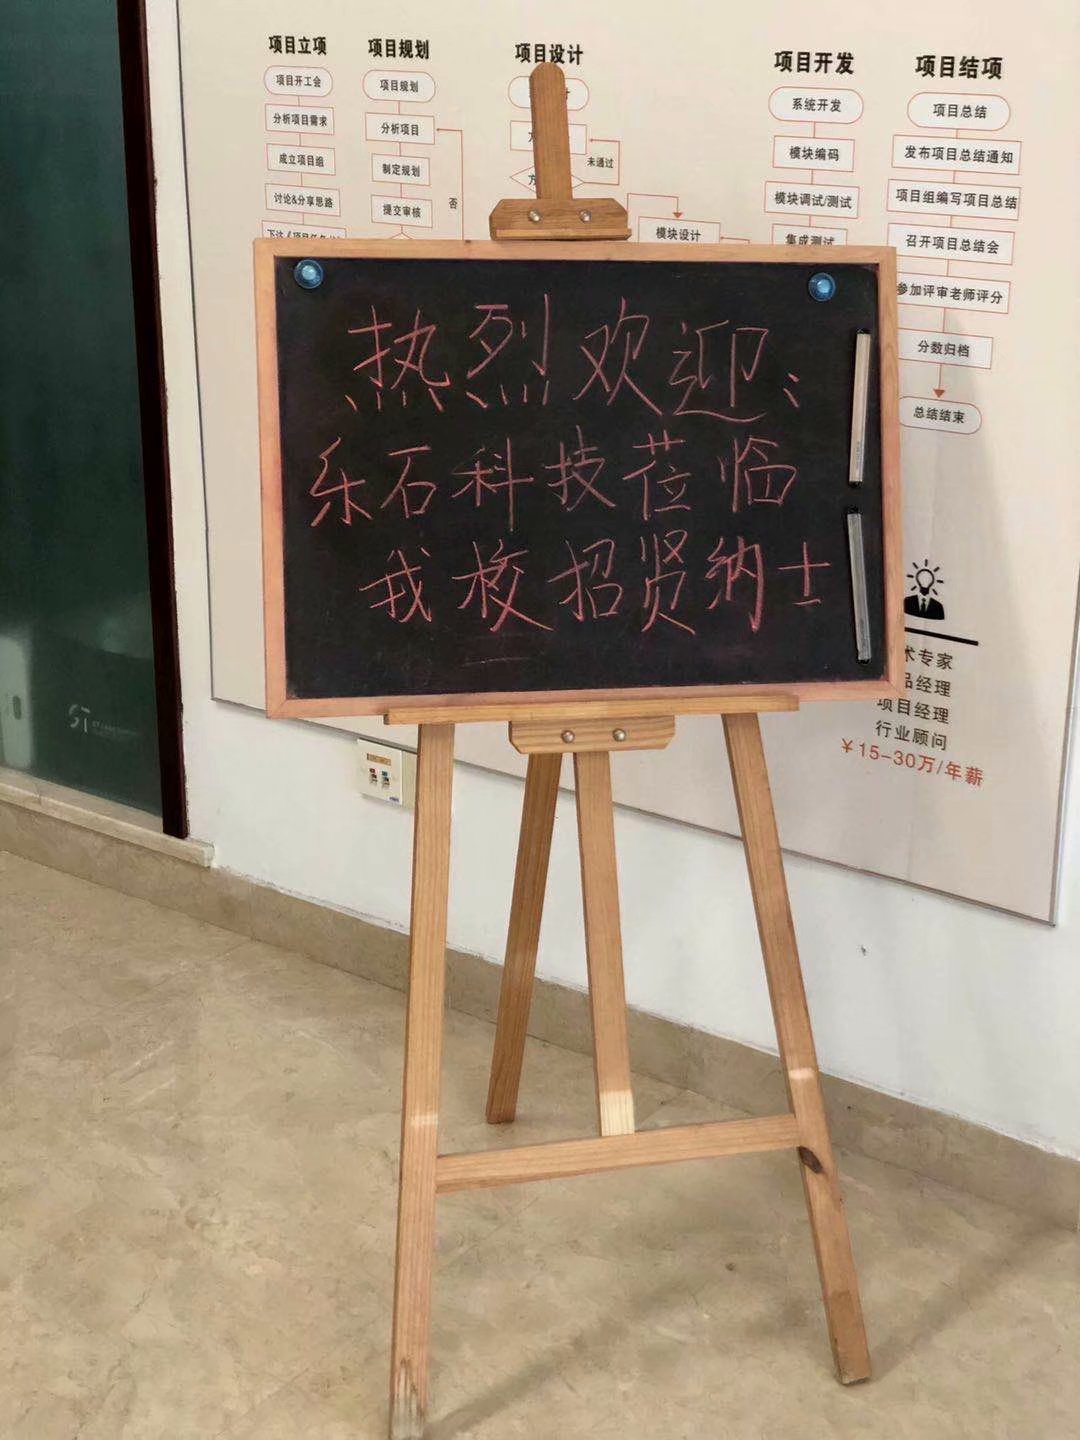 项目立项
项目开工会
分析项目需求
成立项目组
讨论&分享思路
项目规划
项目规划
分析项目
制定规划
提交审核
否
项目设计
未通过
模块设计
项目开发
系统开发
模块编码
模块调试/测试
集成测试
项目结项
项目总结
发布项目总结通知
项目组编写项目总结
召开项目总结会
参加评审老师评分
分数归档
总结结束
热烈欢迎:
乐石科技莅临
我校招贤纳士
术专家
品经理
项目经理
行业顾问
￥15-30万/年薪